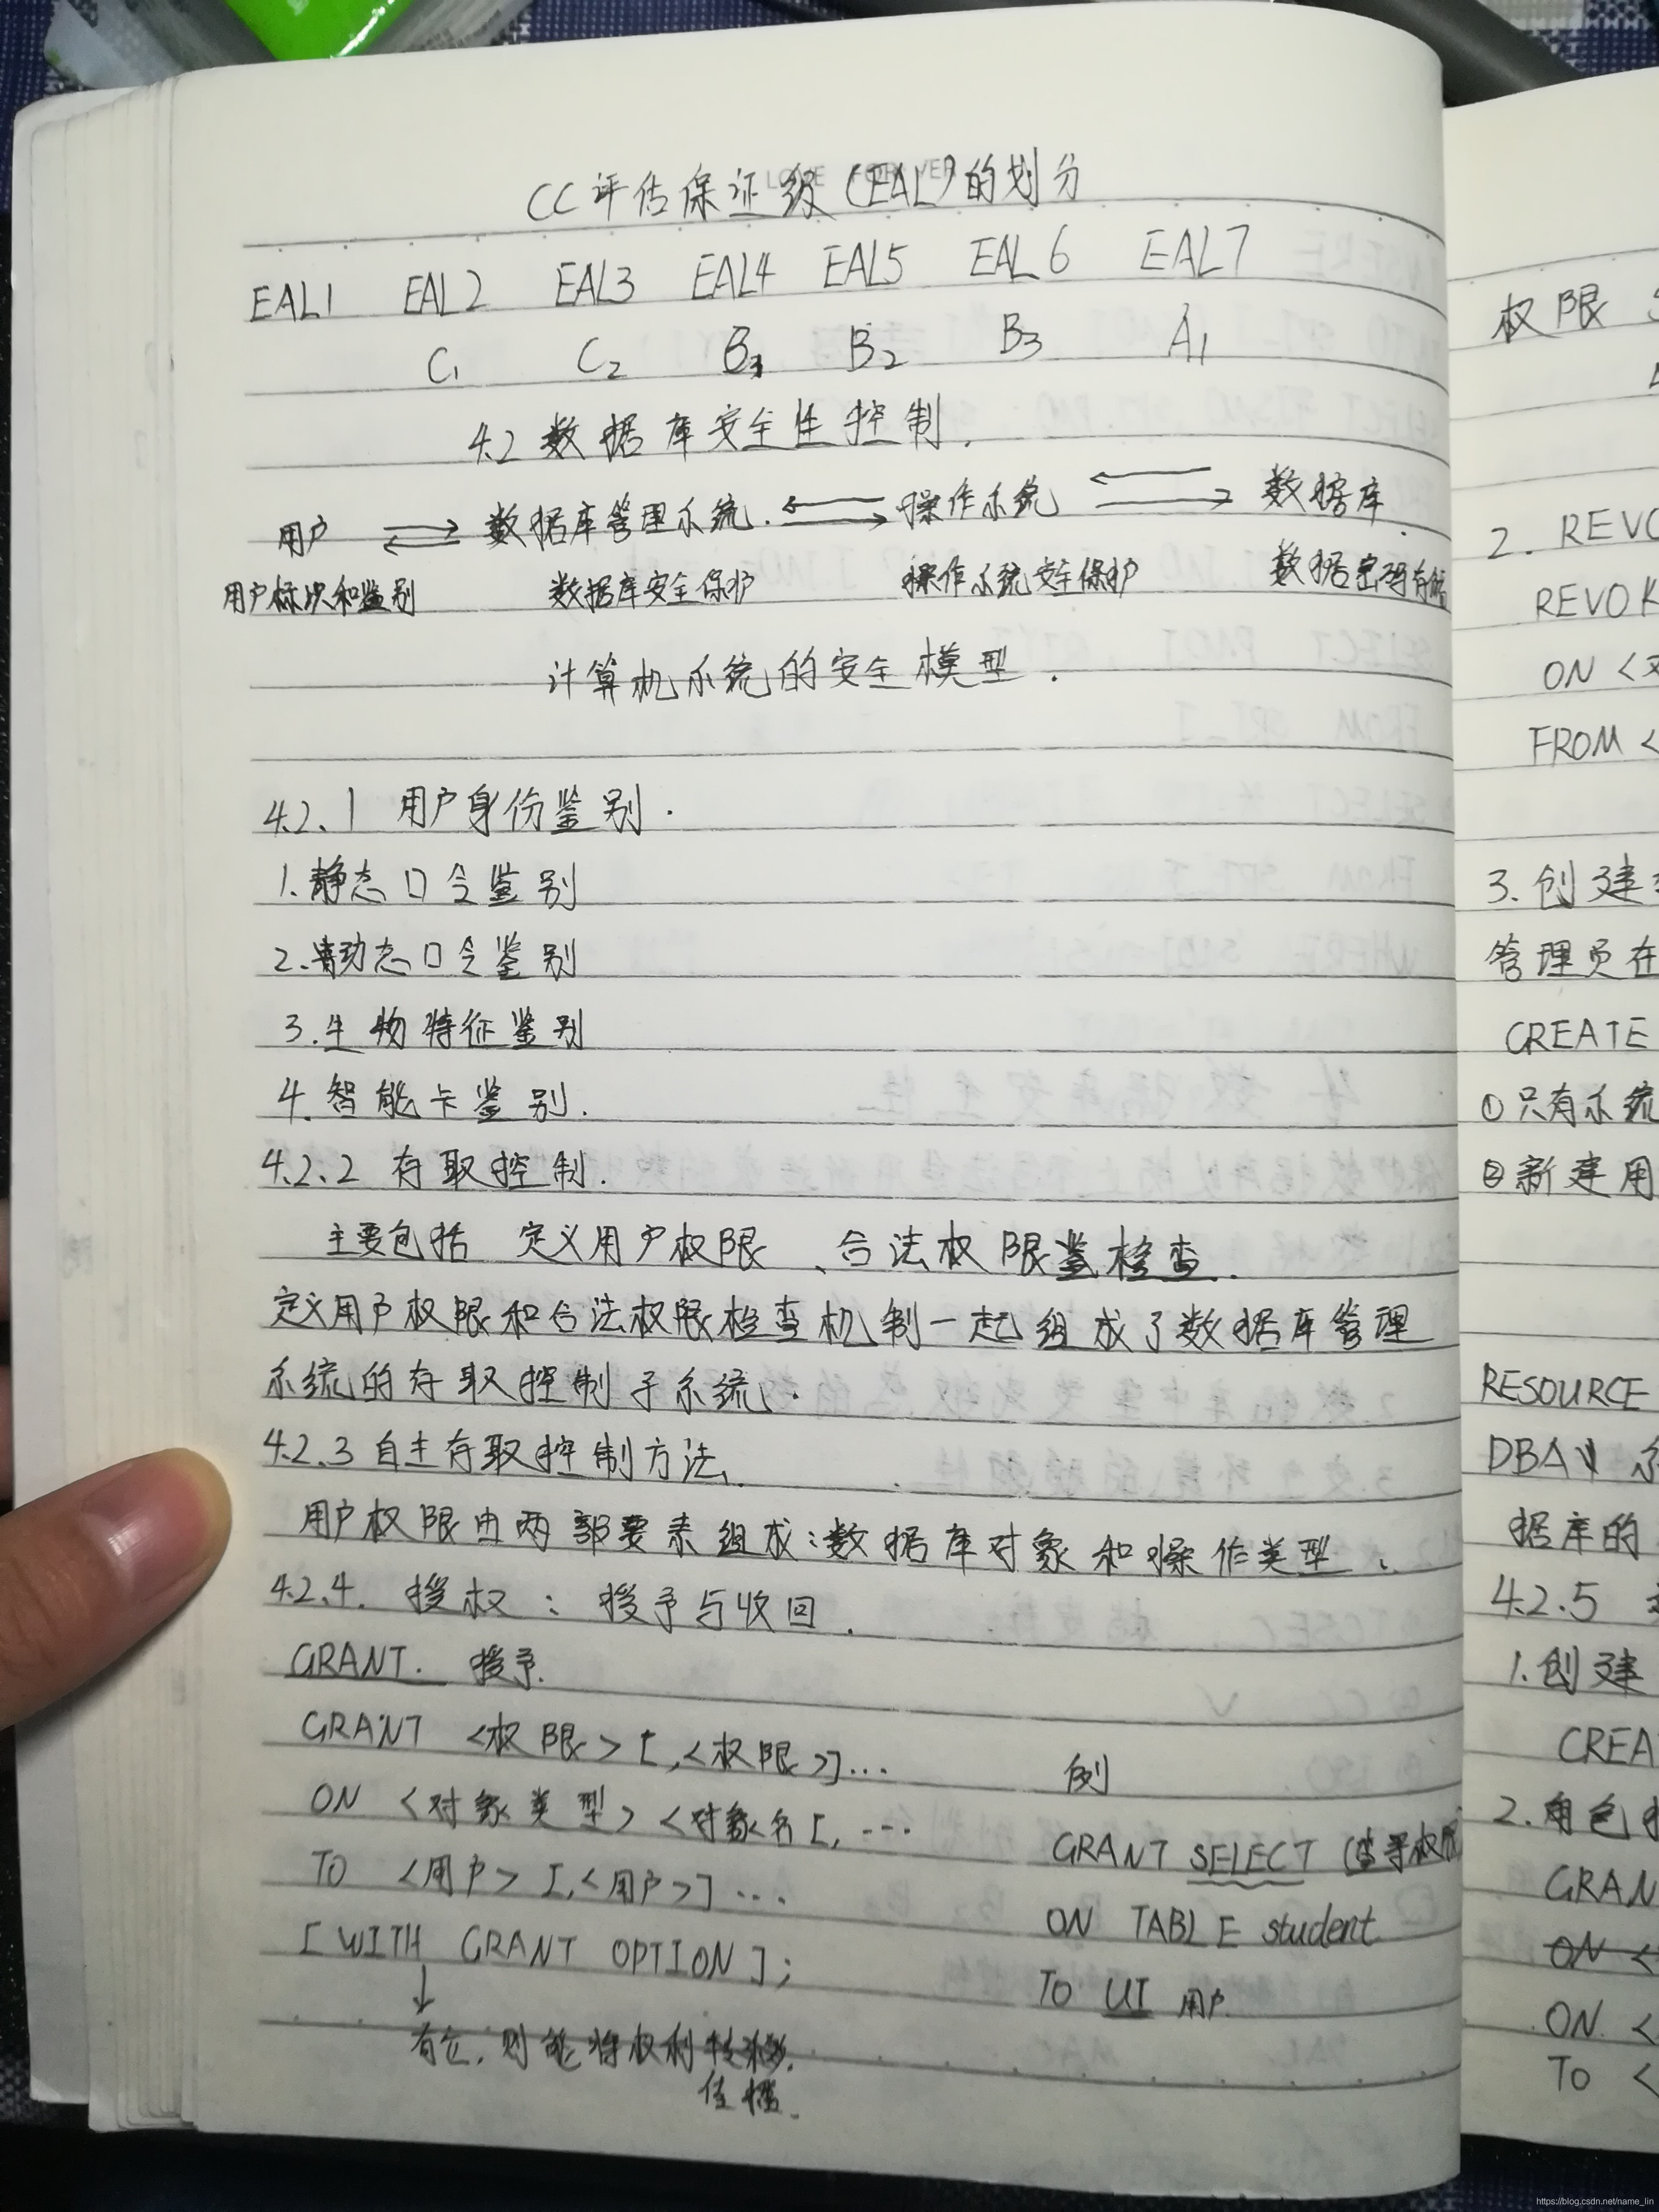 CC评估保证级(EAL)的划分
EAL1 EAL2 EAL3 EAL4 EAL5 EAL6 EAL7
C1 C2 B1 B2 B3 A1
4.2 数据库安全性控制.
用户 ⇌ 数据库管理系统. ⇌ 操作系统 ⇌ 数据库
用户标识和鉴别 数据库安全保护 操作系统安全保护 数据密码存储
计算机系统的安全模型.
4.2.1 用户身份鉴别.
1.静态口令鉴别
2.动态口令鉴别
3.生物特征鉴别
4.智能卡鉴别.
4.2.2 存取控制.
主要包括 定义用户权限、合法权限检查.
定义用户权限和合法权限检查机制一起组成了数据库管理
系统的存取控制子系统.
4.2.3 自主存取控制方法.
用户权限由两部要素组成:数据库对象和操作类型.
4.2.4. 授权:授予与收回.
GRANT. 授予.
GRANT <权限>[,<权限>]...
ON <对象类型> <对象名[, ...
TO <用户> [,<用户>] ...
[WITH GRANT OPTION];
↓
有它,则能将权利
传播.
例
GRANT SELECT (查寻权限
ON TABLE student
TO U1 用户
权限
2. REVO
REVOK
ON <
FROM <
3.创建
管理员在
CREATE
①只有系统
②新建用
RESOURCE
DBA
据库的
4.2.5
1.创建
CREA
2.角色
GRAN
ON <
ON. <
TO <
https://blog.csdn.net/name_lin